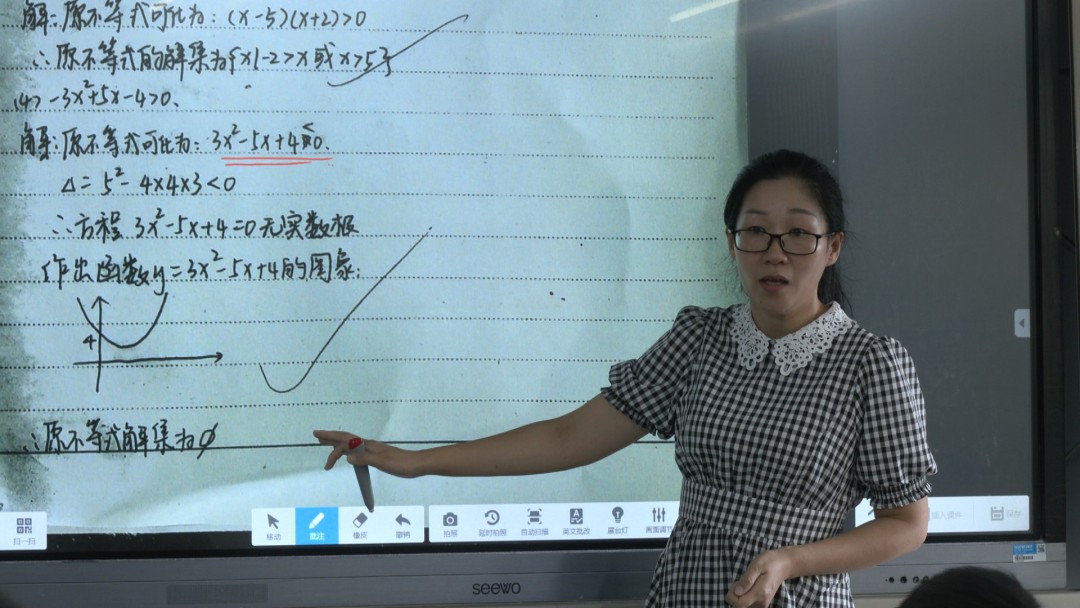 解:原不等式可化为:(x-5)(x+2)>0
∴原不等式的解集为{x|-2>x或x>5}
(4) -3x²+5x-4>0.
解:原不等式可化为:3x²-5x+4<0.
Δ=5²-4×4×3<0
∴方程 3x²-5x+4=0无实数根
作出函数y=3x²-5x+4的图象:
4
∴原不等式解集为∅
扫一扫
移动 批注 橡皮 撤销 拍照 延时拍照 自动扫描 英文批改 展台灯 画面调节 插入课件 保存
seewo